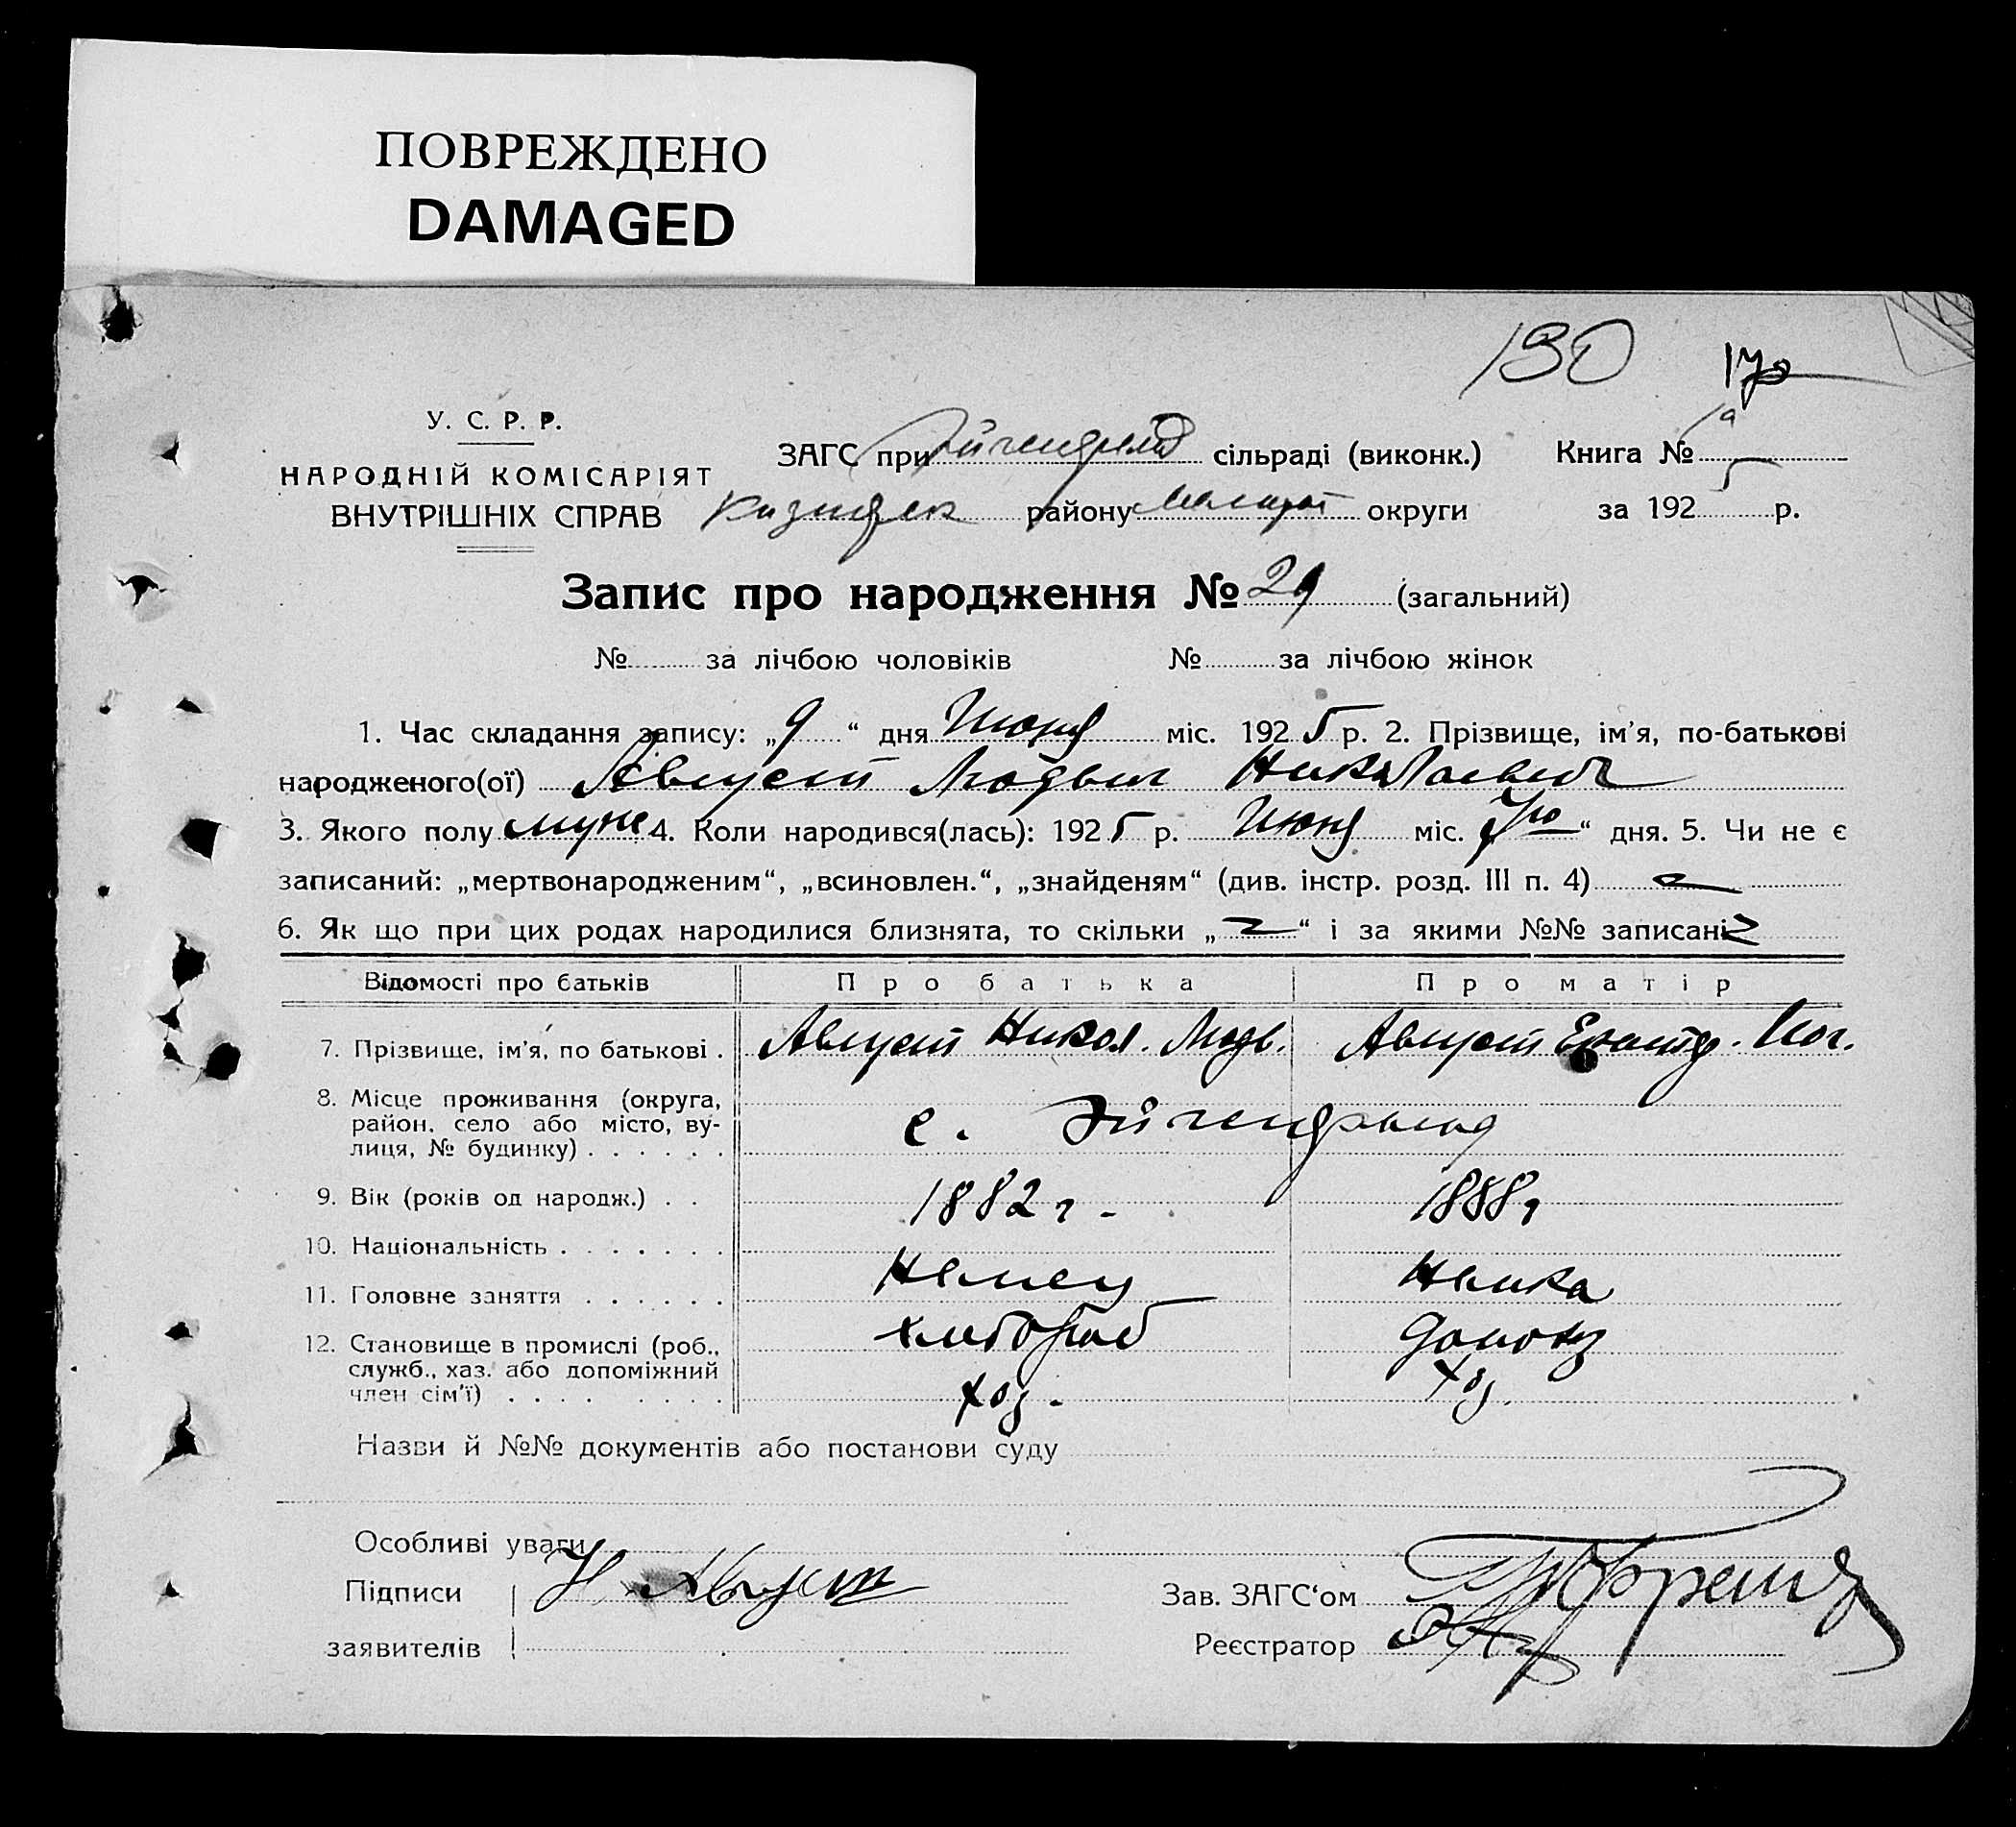 ПОВРЕЖДЕНО
DAMAGED
190 170
У. С. Р. Р.
НАРОДНІЙ КОМІСАРІЯТ
ВНУТРІШНІХ СПРАВ
ЗАГС при Эйгенфельд сільраді (виконк.) Книга № 1а
району Мелитоп округи за 1925 р.
Запис про народження № 29 (загальний)
№ за лічбою чоловіків № за лічбою жінок
1. Час складання запису: „9“ дня Июня міс. 1925 р. 2. Прізвище, ім'я, по-батькові
народженого(ої) Август Людвиг Николаевич
3. Якого полу муж 4. Коли народився(лась): 1925 р. Июня міс. 7го“ дня. 5. Чи не є
записаний: „мертвонародженим“, „всиновлен.“, „знайденям“ (див. інстр. розд. III п. 4) —
6. Як що при цих родах народилися близнята, то скільки „ “ і за якими №№ записані
Відомості про батьків Про батька Про матір
7. Прізвище, ім'я, по батькові . Август Никол. Людв. Август
8. Місце проживання (округа,
район, село або місто, ву-
лиця, № будинку) . . . . . . с. Эйгенфельд
9. Вік (років од народж.) . . 1882 г. 1888 г
10. Національність . . . . . . . Немец Немка
11. Головне заняття . . . . . . хлебороб домохоз
12. Становище в промислі (роб.,
служб., хаз. або допоміжний
член сім'ї) . . . . . . . . хоз. хоз.
Назви й №№ документів або постанови суду
Особливі уваги
Підписи Н Август Зав. ЗАГС‘ом
заявителів Реєстратор